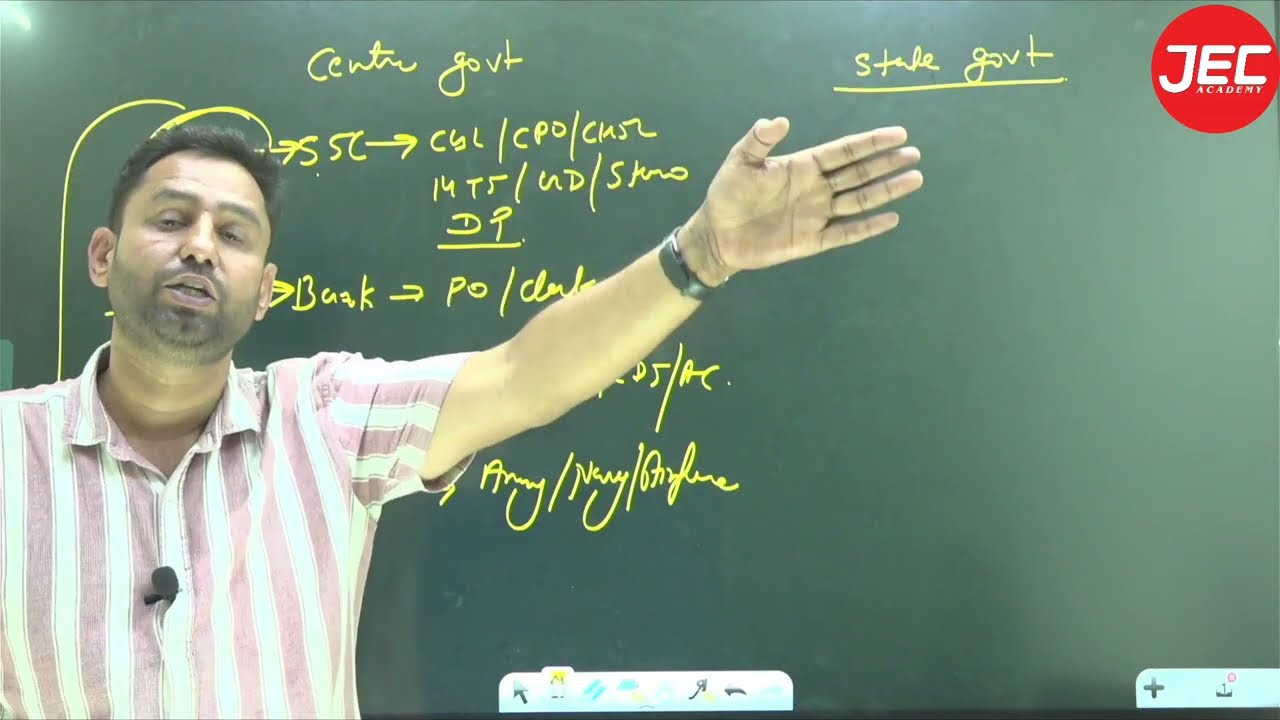 Centre govt
State govt
JEC
ACADEMY
SSC → CGL/CPO/CHSL
MTS/GD/Steno
DP
Bank → PO/Clerk
CDS/AC.
Army/Navy/Airforce